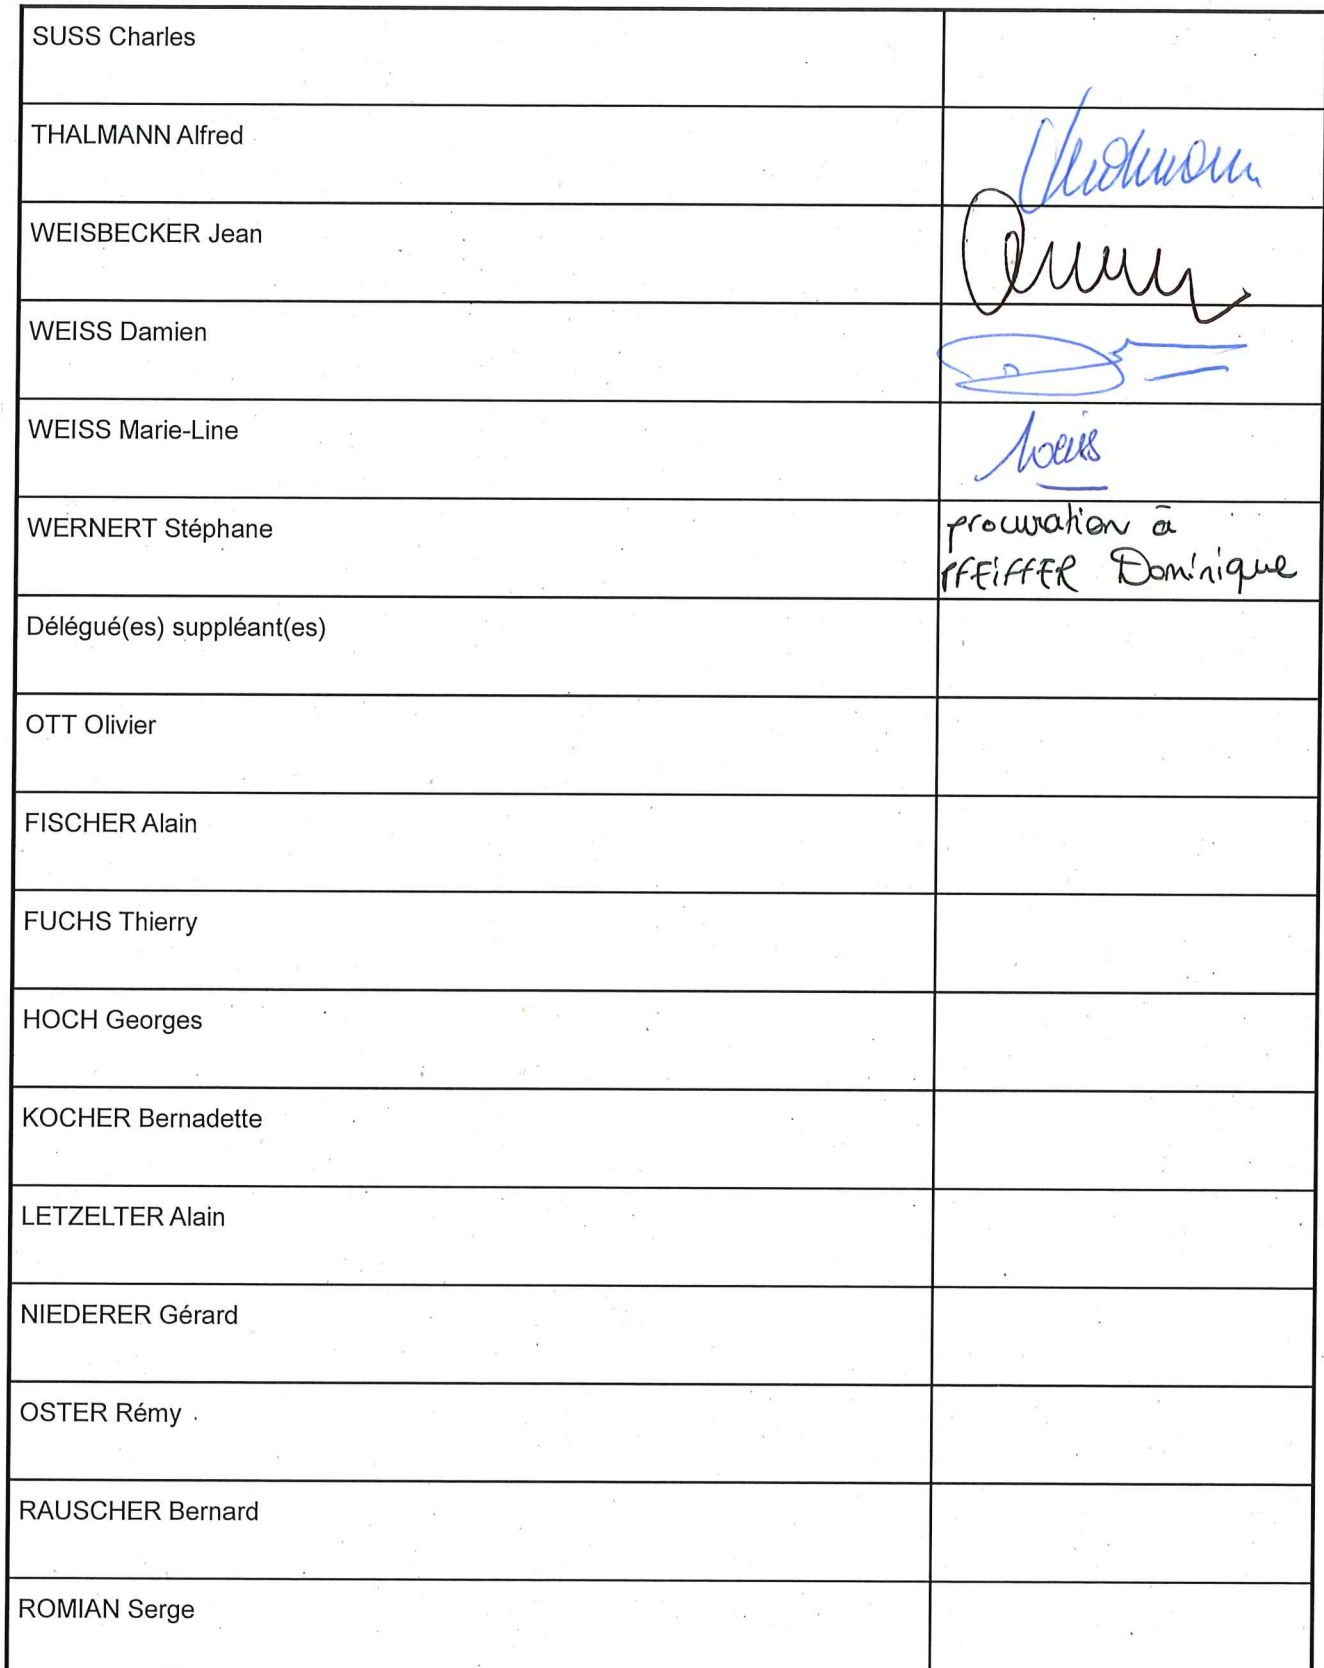 SUSS Charles
THALMANN Alfred
WEISBECKER Jean
WEISS Damien
WEISS Marie-Line
Weiss
WERNERT Stéphane
procuration à
PFEIFFER Dominique
Délégué(es) suppléant(es)
OTT Olivier
FISCHER Alain
FUCHS Thierry
HOCH Georges
KOCHER Bernadette
LETZELTER Alain
NIEDERER Gérard
OSTER Rémy
RAUSCHER Bernard
ROMIAN Serge